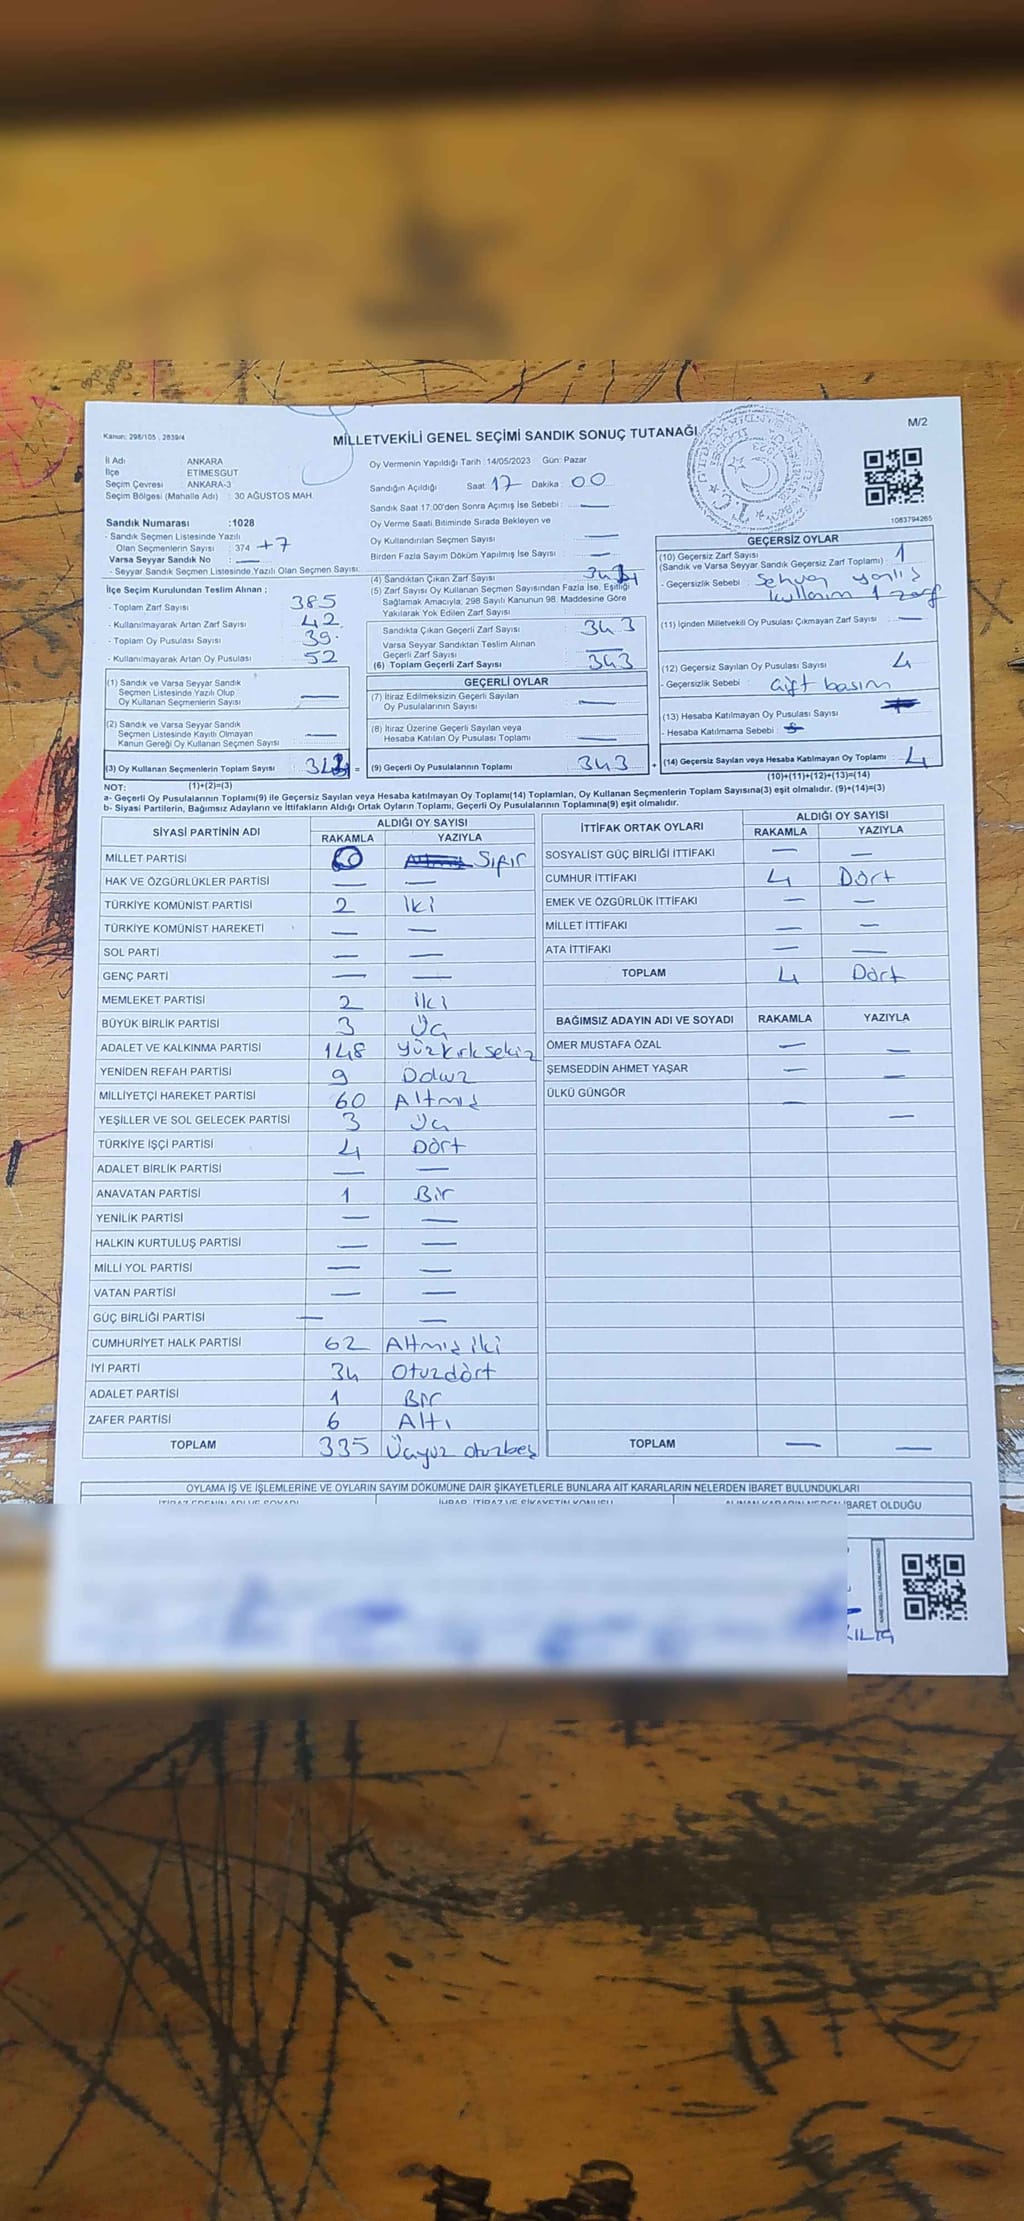 Kanun: 298/105 , 2839/4
MİLLETVEKİLİ GENEL SEÇİMİ SANDIK SONUÇ TUTANAĞI
M/2
İl Adı ANKARA
İlçe ETİMESGUT
Seçim Çevresi ANKARA-3
Seçim Bölgesi (Mahalle Adı) : 30 AĞUSTOS MAH.
Sandık Numarası :1028
- Sandık Seçmen Listesinde Yazılı
Olan Seçmenlerin Sayısı : 374 +7
Varsa Seyyar Sandık No : —
- Seyyar Sandık Seçmen Listesinde Yazılı Olan Seçmen Sayısı:
İlçe Seçim Kurulundan Teslim Alınan ;
- Toplam Zarf Sayısı 385
- Kullanılmayarak Artan Zarf Sayısı 42
- Toplam Oy Pusulası Sayısı
- Kullanılmayarak Artan Oy Pusulası 52
(1) Sandık ve Varsa Seyyar Sandık
Seçmen Listesinde Yazılı Olup
Oy Kullanan Seçmenlerin Sayısı —
(2) Sandık ve Varsa Seyyar Sandık
Seçmen Listesinde Kayıtlı Olmayan
Kanun Gereği Oy Kullanan Seçmen Sayısı —
(3) Oy Kullanan Seçmenlerin Toplam Sayısı =
Oy Vermenin Yapıldığı Tarih :14/05/2023 Gün: Pazar
Sandığın Açıldığı Saat: 17 Dakika : 00
Sandık Saat 17:00'den Sonra Açımış İse Sebebi: —
Oy Verme Saati Bitiminde Sırada Bekleyen ve
Oy Kullandırılan Seçmen Sayısı —
Birden Fazla Sayım Döküm Yapılmış İse Sayısı : —
(4) Sandıktan Çıkan Zarf Sayısı
(5) Zarf Sayısı Oy Kullanan Seçmen Sayısından Fazla İse, Eşitliği
Sağlamak Amacıyla; 298 Sayılı Kanunun 98. Maddesine Göre
Yakılarak Yok Edilen Zarf Sayısı :
Sandıkta Çıkan Geçerli Zarf Sayısı 343
Varsa Seyyar Sandıktan Teslim Alınan
Geçerli Zarf Sayısı —
(6) Toplam Geçerli Zarf Sayısı 343
GEÇERLİ OYLAR
(7) İtiraz Edilmeksizin Geçerli Sayılan
Oy Pusulalarının Sayısı —
(8) İtiraz Üzerine Geçerli Sayılan veya
Hesaba Katılan Oy Pusulası Toplamı —
(9) Geçerli Oy Pusulalarının Toplamı 343 +
1083794265
GEÇERSİZ OYLAR
(10) Geçersiz Zarf Sayısı 1
(Sandık ve Varsa Seyyar Sandık Geçersiz Zarf Toplamı) :
- Geçersizlik Sebebi : Sehven yanlış
kullanım 1 zarf
(11) İçinden Milletvekili Oy Pusulası Çıkmayan Zarf Sayısı —
(12) Geçersiz Sayılan Oy Pusulası Sayısı 4
- Geçersizlik Sebebi : Çift basım
(13) Hesaba Katılmayan Oy Pusulası Sayısı
- Hesaba Katılmama Sebebi :
(14) Geçersiz Sayılan veya Hesaba Katılmayan Oy Toplamı : 4
NOT: (1)+(2)=(3)
(10)+(11)+(12)+(13)=(14)
a- Geçerli Oy Pusulalarının Toplamı(9) ile Geçersiz Sayılan veya Hesaba katılmayan Oy Toplamı(14) Toplamları, Oy Kullanan Seçmenlerin Toplam Sayısına(3) eşit olmalıdır. (9)+(14)=(3)
b- Siyasi Partilerin, Bağımsız Adayların ve İttifakların Aldığı Ortak Oyların Toplamı, Geçerli Oy Pusulalarının Toplamına(9) eşit olmalıdır.
SİYASİ PARTİNİN ADI ALDIĞI OY SAYISI
RAKAMLA YAZIYLA
MİLLET PARTİSİ 0 Sıfır
HAK VE ÖZGÜRLÜKLER PARTİSİ — —
TÜRKİYE KOMÜNİST PARTİSİ 2 İki
TÜRKİYE KOMÜNİST HAREKETİ — —
SOL PARTİ — —
GENÇ PARTİ — —
MEMLEKET PARTİSİ 2 İki
BÜYÜK BİRLİK PARTİSİ 3 Üç
ADALET VE KALKINMA PARTİSİ 148 Yüzkırksekiz
YENİDEN REFAH PARTİSİ 9 Dokuz
MİLLİYETÇİ HAREKET PARTİSİ 60 Altmış
YEŞİLLER VE SOL GELECEK PARTİSİ 3 Üç
TÜRKİYE İŞÇİ PARTİSİ 4 Dört
ADALET BİRLİK PARTİSİ — —
ANAVATAN PARTİSİ 1 Bir
YENİLİK PARTİSİ — —
HALKIN KURTULUŞ PARTİSİ — —
MİLLİ YOL PARTİSİ — —
VATAN PARTİSİ — —
GÜÇ BİRLİĞİ PARTİSİ — —
CUMHURİYET HALK PARTİSİ 62 Altmış iki
İYİ PARTİ 34 Otuzdört
ADALET PARTİSİ 1 Bir
ZAFER PARTİSİ 6 Altı
TOPLAM 335 Üçyüz otuzbeş
İTTİFAK ORTAK OYLARI ALDIĞI OY SAYISI
RAKAMLA YAZIYLA
SOSYALİST GÜÇ BİRLİĞİ İTTİFAKI — —
CUMHUR İTTİFAKI 4 Dört
EMEK VE ÖZGÜRLÜK İTTİFAKI — —
MİLLET İTTİFAKI — —
ATA İTTİFAKI — —
TOPLAM 4 Dört
BAĞIMSIZ ADAYIN ADI VE SOYADI RAKAMLA YAZIYLA
ÖMER MUSTAFA ÖZAL — —
ŞEMSEDDİN AHMET YAŞAR — —
ÜLKÜ GÜNGÖR — —
TOPLAM — —
OYLAMA İŞ VE İŞLEMLERİNE VE OYLARIN SAYIM DÖKÜMÜNE DAİR ŞİKAYETLERLE BUNLARA AİT KARARLARIN NELERDEN İBARET BULUNDUKLARI
İTİRAZ EDENİN ADI VE SOYADI İHBAR, İTİRAZ VE ŞİKAYETİN KONUSU ALINAN KARARIN NEDEN İBARET OLDUĞU